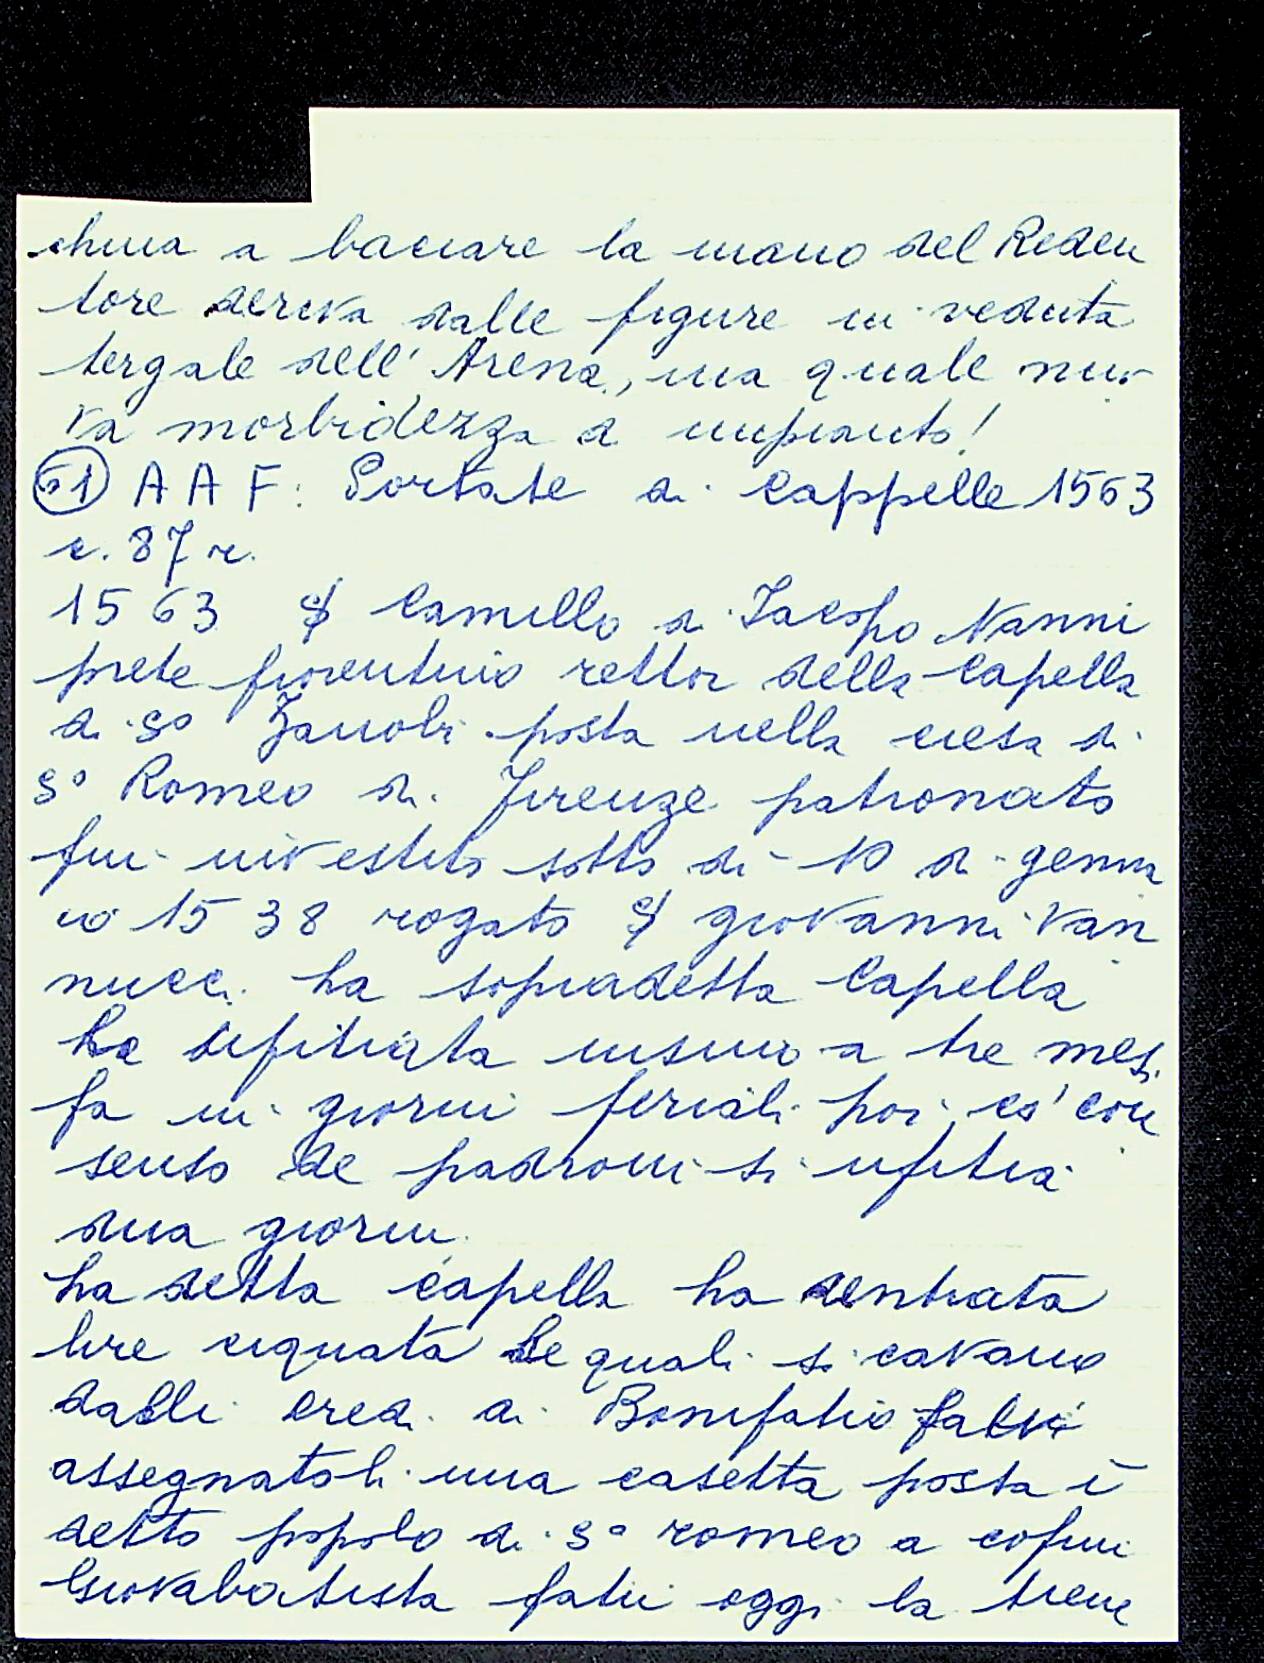 china a baciare la mano del Reden
tore deriva dalle figure in veduta
tergale dell'Arena, ma quale nuo
va morbidezza d impianto!
61 A A F: Portate di Cappelle 1563
c. 87 r.
1563 Camillo di Jacopo Nanni
prete fiorentino rettor della Capella
di So Zanobi posta nella ciesa di
So Romeo di Firenze patronato
fui investito sotto di 10 di genna
io 1538 rogato giovanni Van
nucci. ha sopradetta Capella
insino a tre mesi
fa in giorni feriali poi co' con
senso de padroni si ufitia
dua giorni.
ha detta capella ha dentrata
lire ciquata le quali si cavano
dalli eredi di Bonifatio fatii
assegnatoli una casetta posta ĩ
detto popolo di So romeo a cofini
Giovabatista fatii oggi la tiene